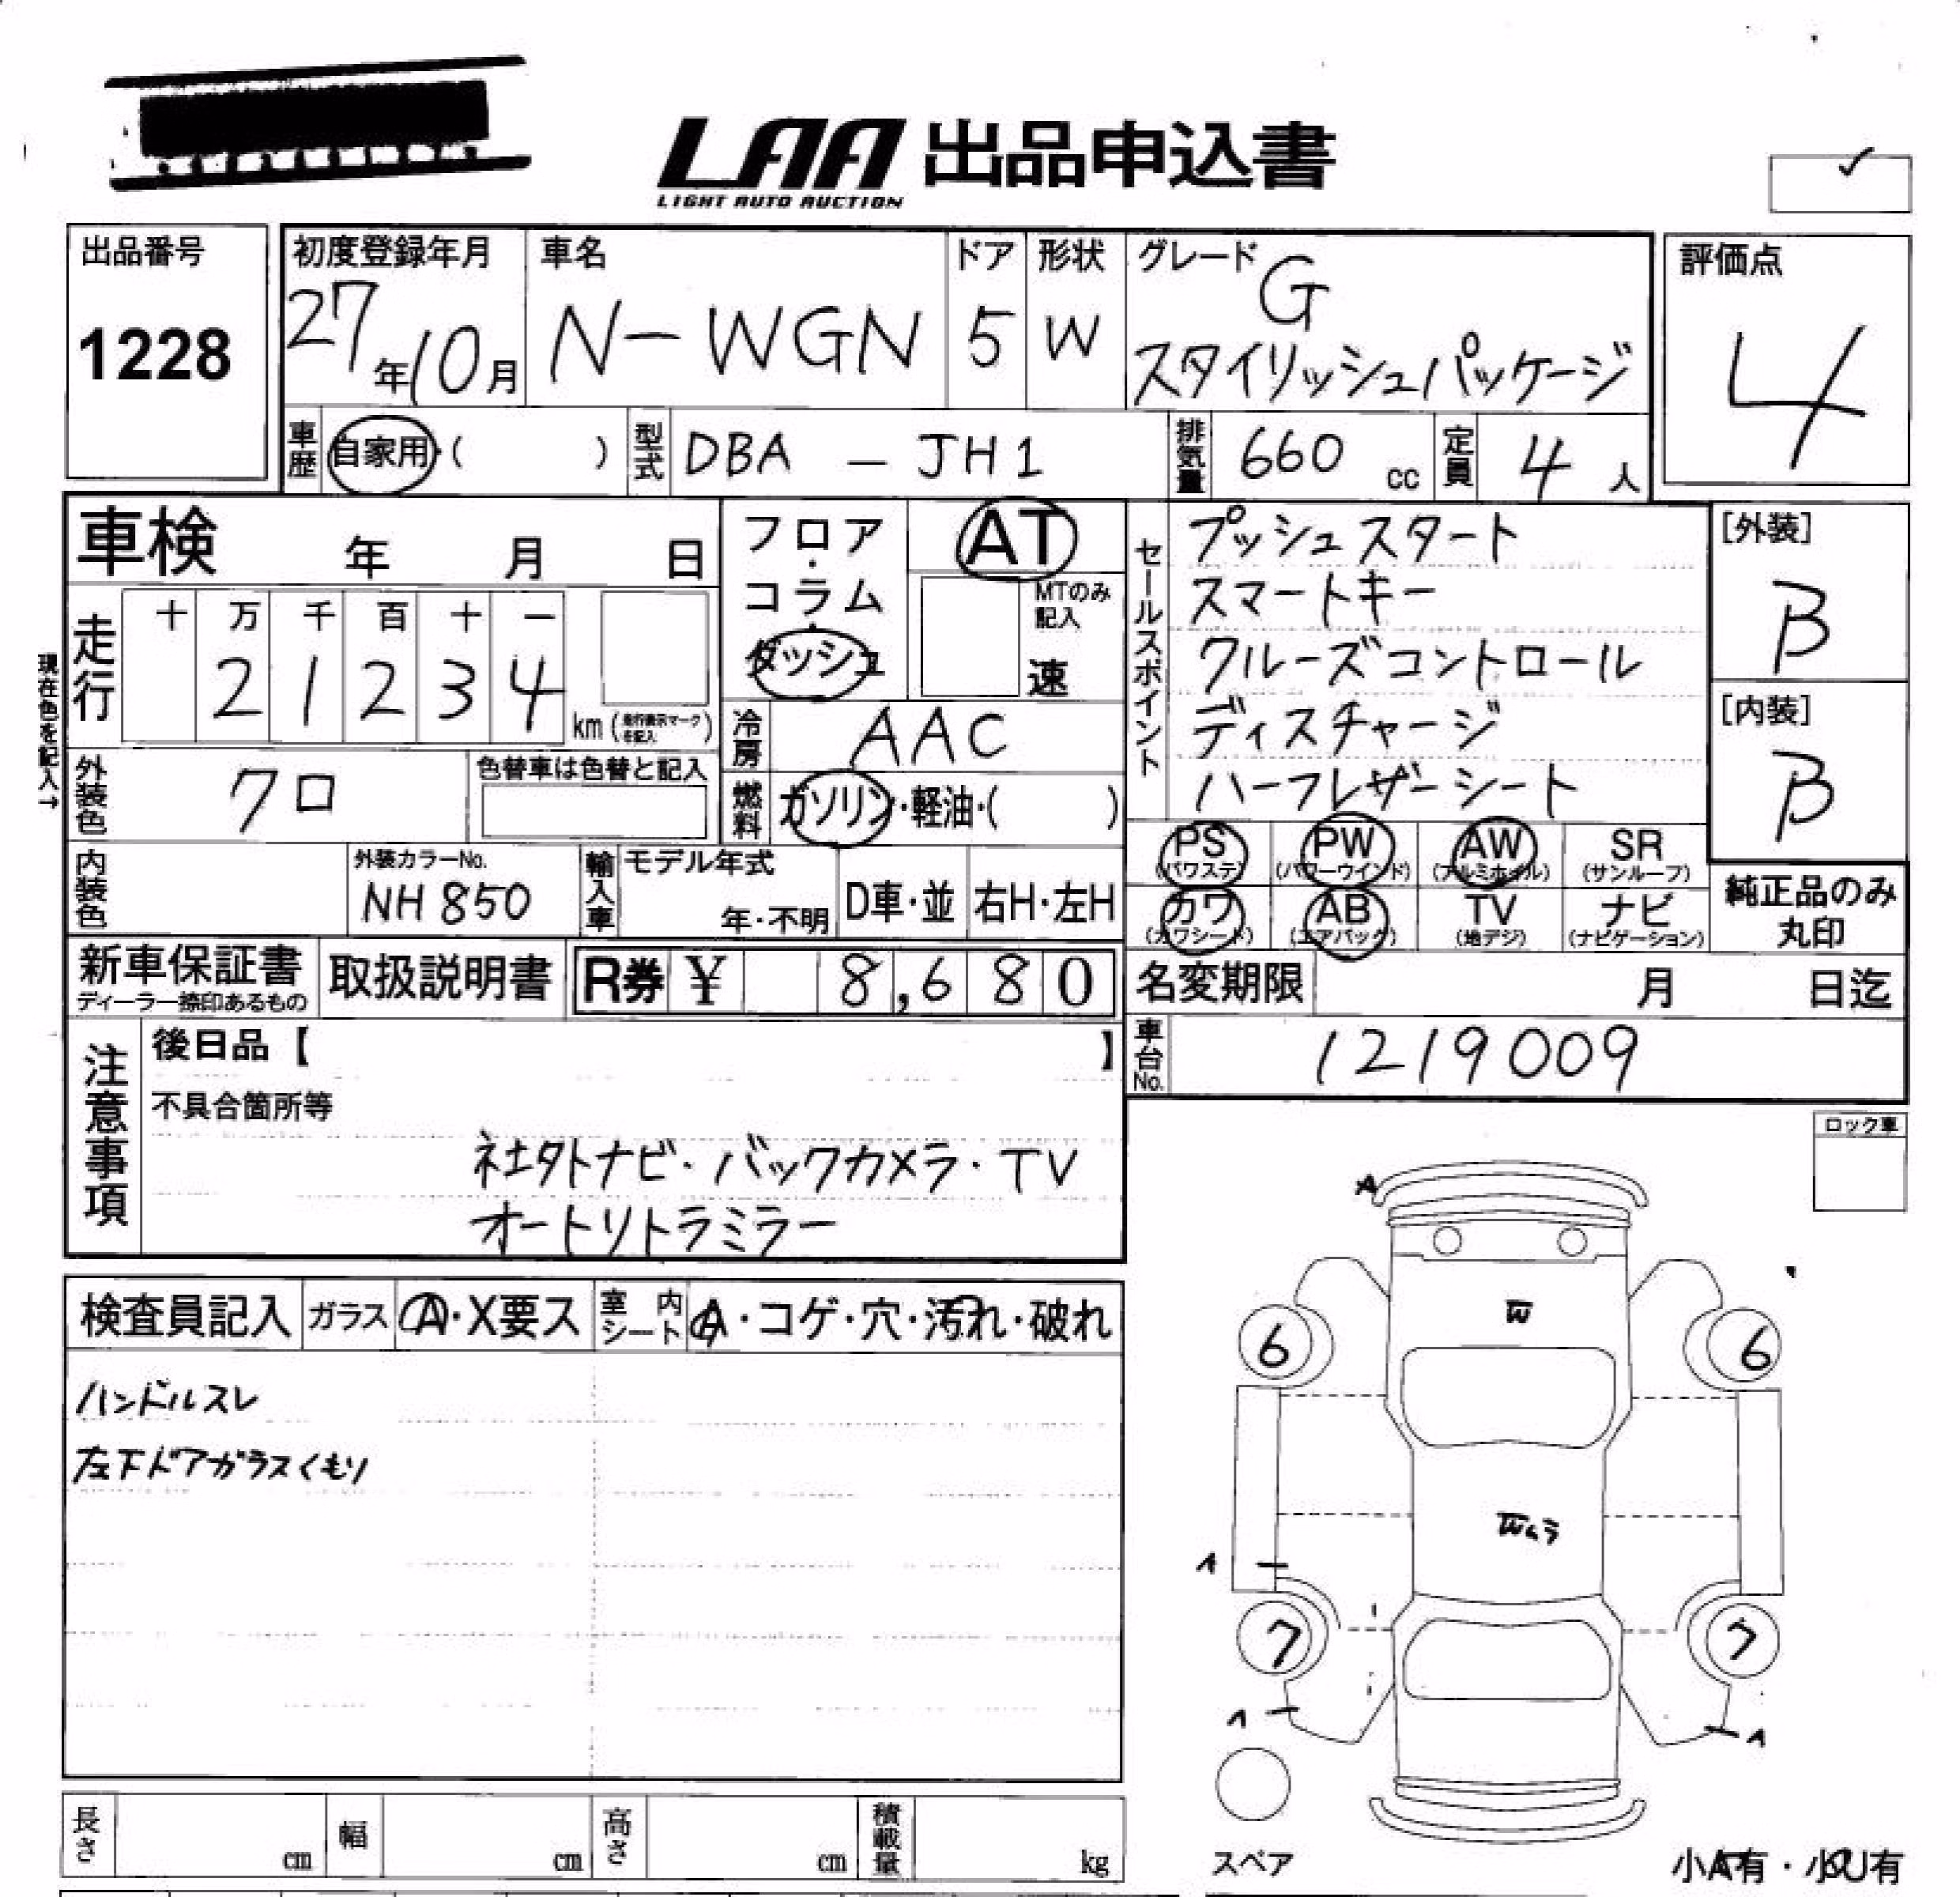 LAA 出品申込書
LIGHT AUTO AUCTION
出品番号
1228
初度登録年月
27年10月
車名
N-WGN
ドア
5
形状
W
グレード
G
スタイリッシュパッケージ
評価点
4
車歴
自家用・( )
型式
DBA - JH1
排気量
660 cc
定員
4 人
車検 年 月 日
フロア・コラム・ダッシュ
AT
MTのみ記入
速
セールスポイント
プッシュスタート
スマートキー
クルーズコントロール
ディスチャージ
ハーフレザーシート
[外装]
B
[内装]
B
現在色を記入→
走行
十 万 千 百 十 一
2 1 2 3 4
km (走行表示マークを記入)
冷房
AAC
外装色
クロ
色替車は色替と記入
燃料
ガソリン・軽油・( )
PS (パワステ) PW (パワーウインド) AW (アルミホイル) SR (サンルーフ)
カワ (カワシート) AB (エアバック) TV (地デジ) ナビ (ナビゲーション)
純正品のみ
丸印
内装色
外装カラーNo.
NH850
輸入車
モデル年式
年・不明
D車・並
右H・左H
新車保証書
ディーラー捺印あるもの
取扱説明書
R券 ¥ 8,680
名変期限 月 日迄
車台No.
1219009
注意事項
後日品【 】
不具合箇所等
社外ナビ・バックカメラ・TV
オートリトラミラー
ロック車
検査員記入
ガラス
A・X要ス
室内シート
A・コゲ・穴・汚れ・破れ
ハンドルスレ
左下ドアガラスくもり
A
W
6
6
Wムラ
1
7
7
1
1
スペア
小A有・小U有
長さ cm
幅 cm
高さ cm
積載量 kg